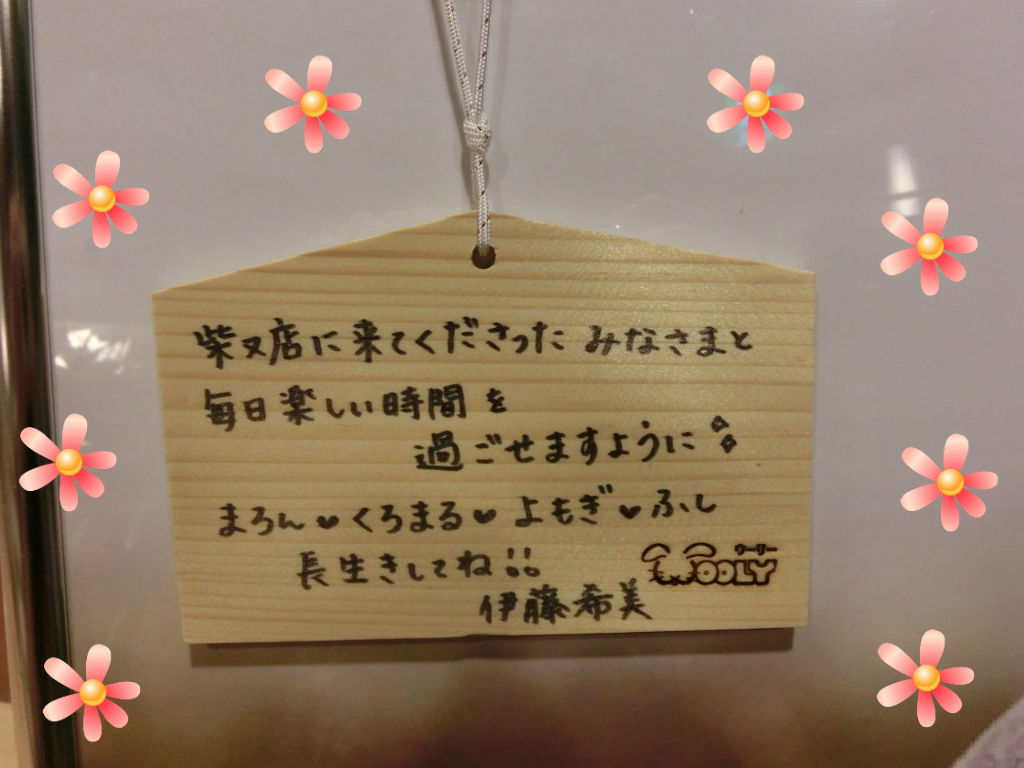 柴又店に来てくださった みなさまと
毎日楽しい時間を
過ごせますように
まろん♥くろまる♥よもぎ♥ふし
長生きしてね!!
ウーリー
WOOLY
伊藤希美